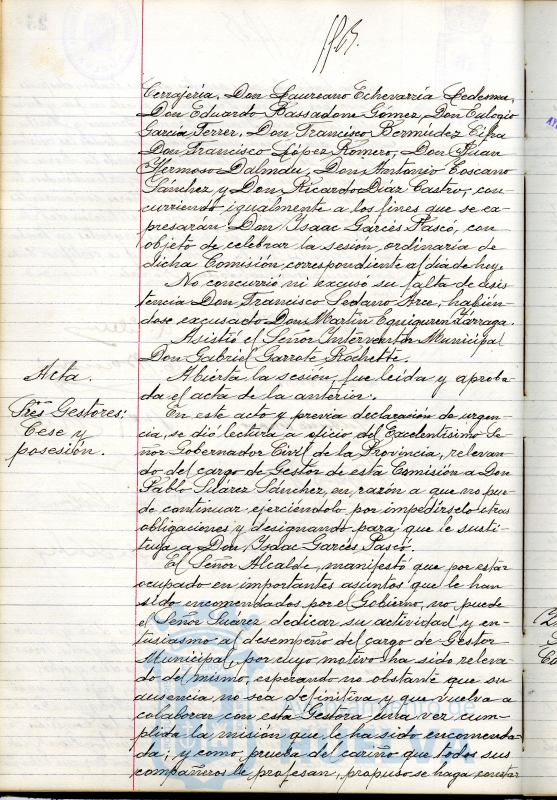 Cerrajería, Don Laureano Echevarría Ledesma,
Don Eduardo Bassadone Gómez, Don Eulogio
García Ferrer, Don Francisco Bermúdez
Don Francisco López Romero, Don Juan
Hermoso Dalmau, Don Antonio Toscano
Sánchez y Don Ricardo Díaz Castro, con-
curriendo igualmente a los fines que se ex-
presarán Don Isaac Garcés Pascó, con
objeto de celebrar la sesión, ordinaria de
dicha Comisión, correspondiente al día de hoy.
No concurrió ni excuso su falta de asis
tencia Don Francisco Sedano Arce, habién-
dose excusado Don Martín Eguiguren Zárraga.
Asistió el Señor Interventor Municipal
Don Gabriel Garrote Rochette.
Acta.
Abierta la sesión, fue leída y aproba-
da el acta de la anterior.
Sres Gestores;
Cese y
posesión.
En este acto y previa declaración de urgen-
cia, se dió lectura a oficio del Excelentísimo Se-
ñor Gobernador Civil de la Provincia, relevan-
do del cargo de Gestor de esta Comisión a Don
Pablo Suárez Sánchez, en razón a que no pue-
de continuar ejerciéndolo por impedírselo otras
obligaciones y designando para que le susti-
tuya a Don Isaac Garcés Pascó.
El Señor Alcalde, manifestó que por estar
ocupado en importantes asuntos que le han
sido encomendados por el Gobierno, no puede
el Señor Suárez dedicar su actividad y en-
tusiasmo al desempeño del cargo de Gestor
Municipal, por cuyo motivo ha sido releva-
do del mismo, esperando no obstante que su
ausencia no sea definitiva y que vuelva a
colaborar con esta Gestora una vez cum-
plida la misión que le ha sido encomenda-
da; y como prueba del cariño que todos sus
compañeros le profesan, propuso se haga constar
Ayuntamiento de